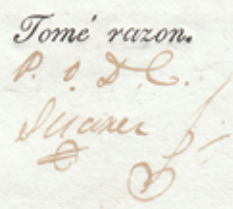 Tomé razon.
P. O. D. C.
Suarez